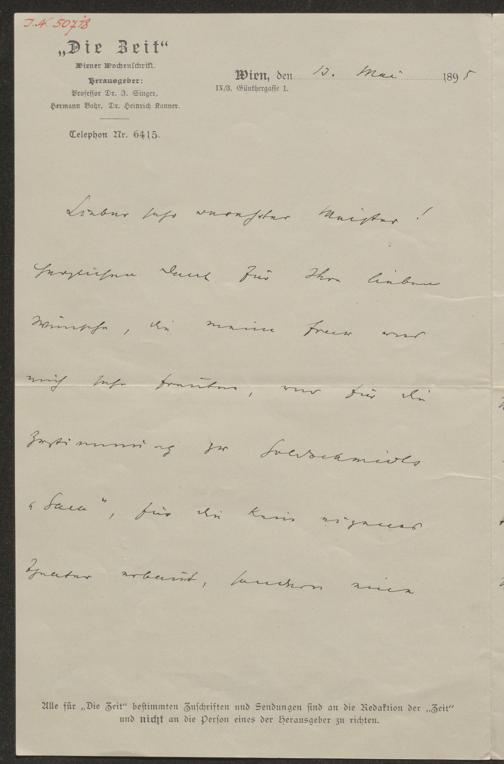 J.N. 50718
„Die Zeit“
Wiener Wochenschrift.
Herausgeber:
Professor Dr. I. Singer,
Hermann Bahr, Dr. Heinrich Kanner.
Telephon Nr. 6415.
Wien, den 13. Mai 1895
IX/3, Günthergasse 1.
Lieber sehr verehrter Meister!
Herzlichen Dank für Ihre lieben
Wünsche, die meine Frau und
mich sehr freuten, und für die
Zustimmung zu Goldschmidts
„Gaea“, für die kein eigenes
Theater erbaut, sondern eine
Alle für „Die Zeit“ bestimmten Zuschriften und Sendungen sind an die Redaktion der „Zeit“
und nicht an die Person eines der Herausgeber zu richten.